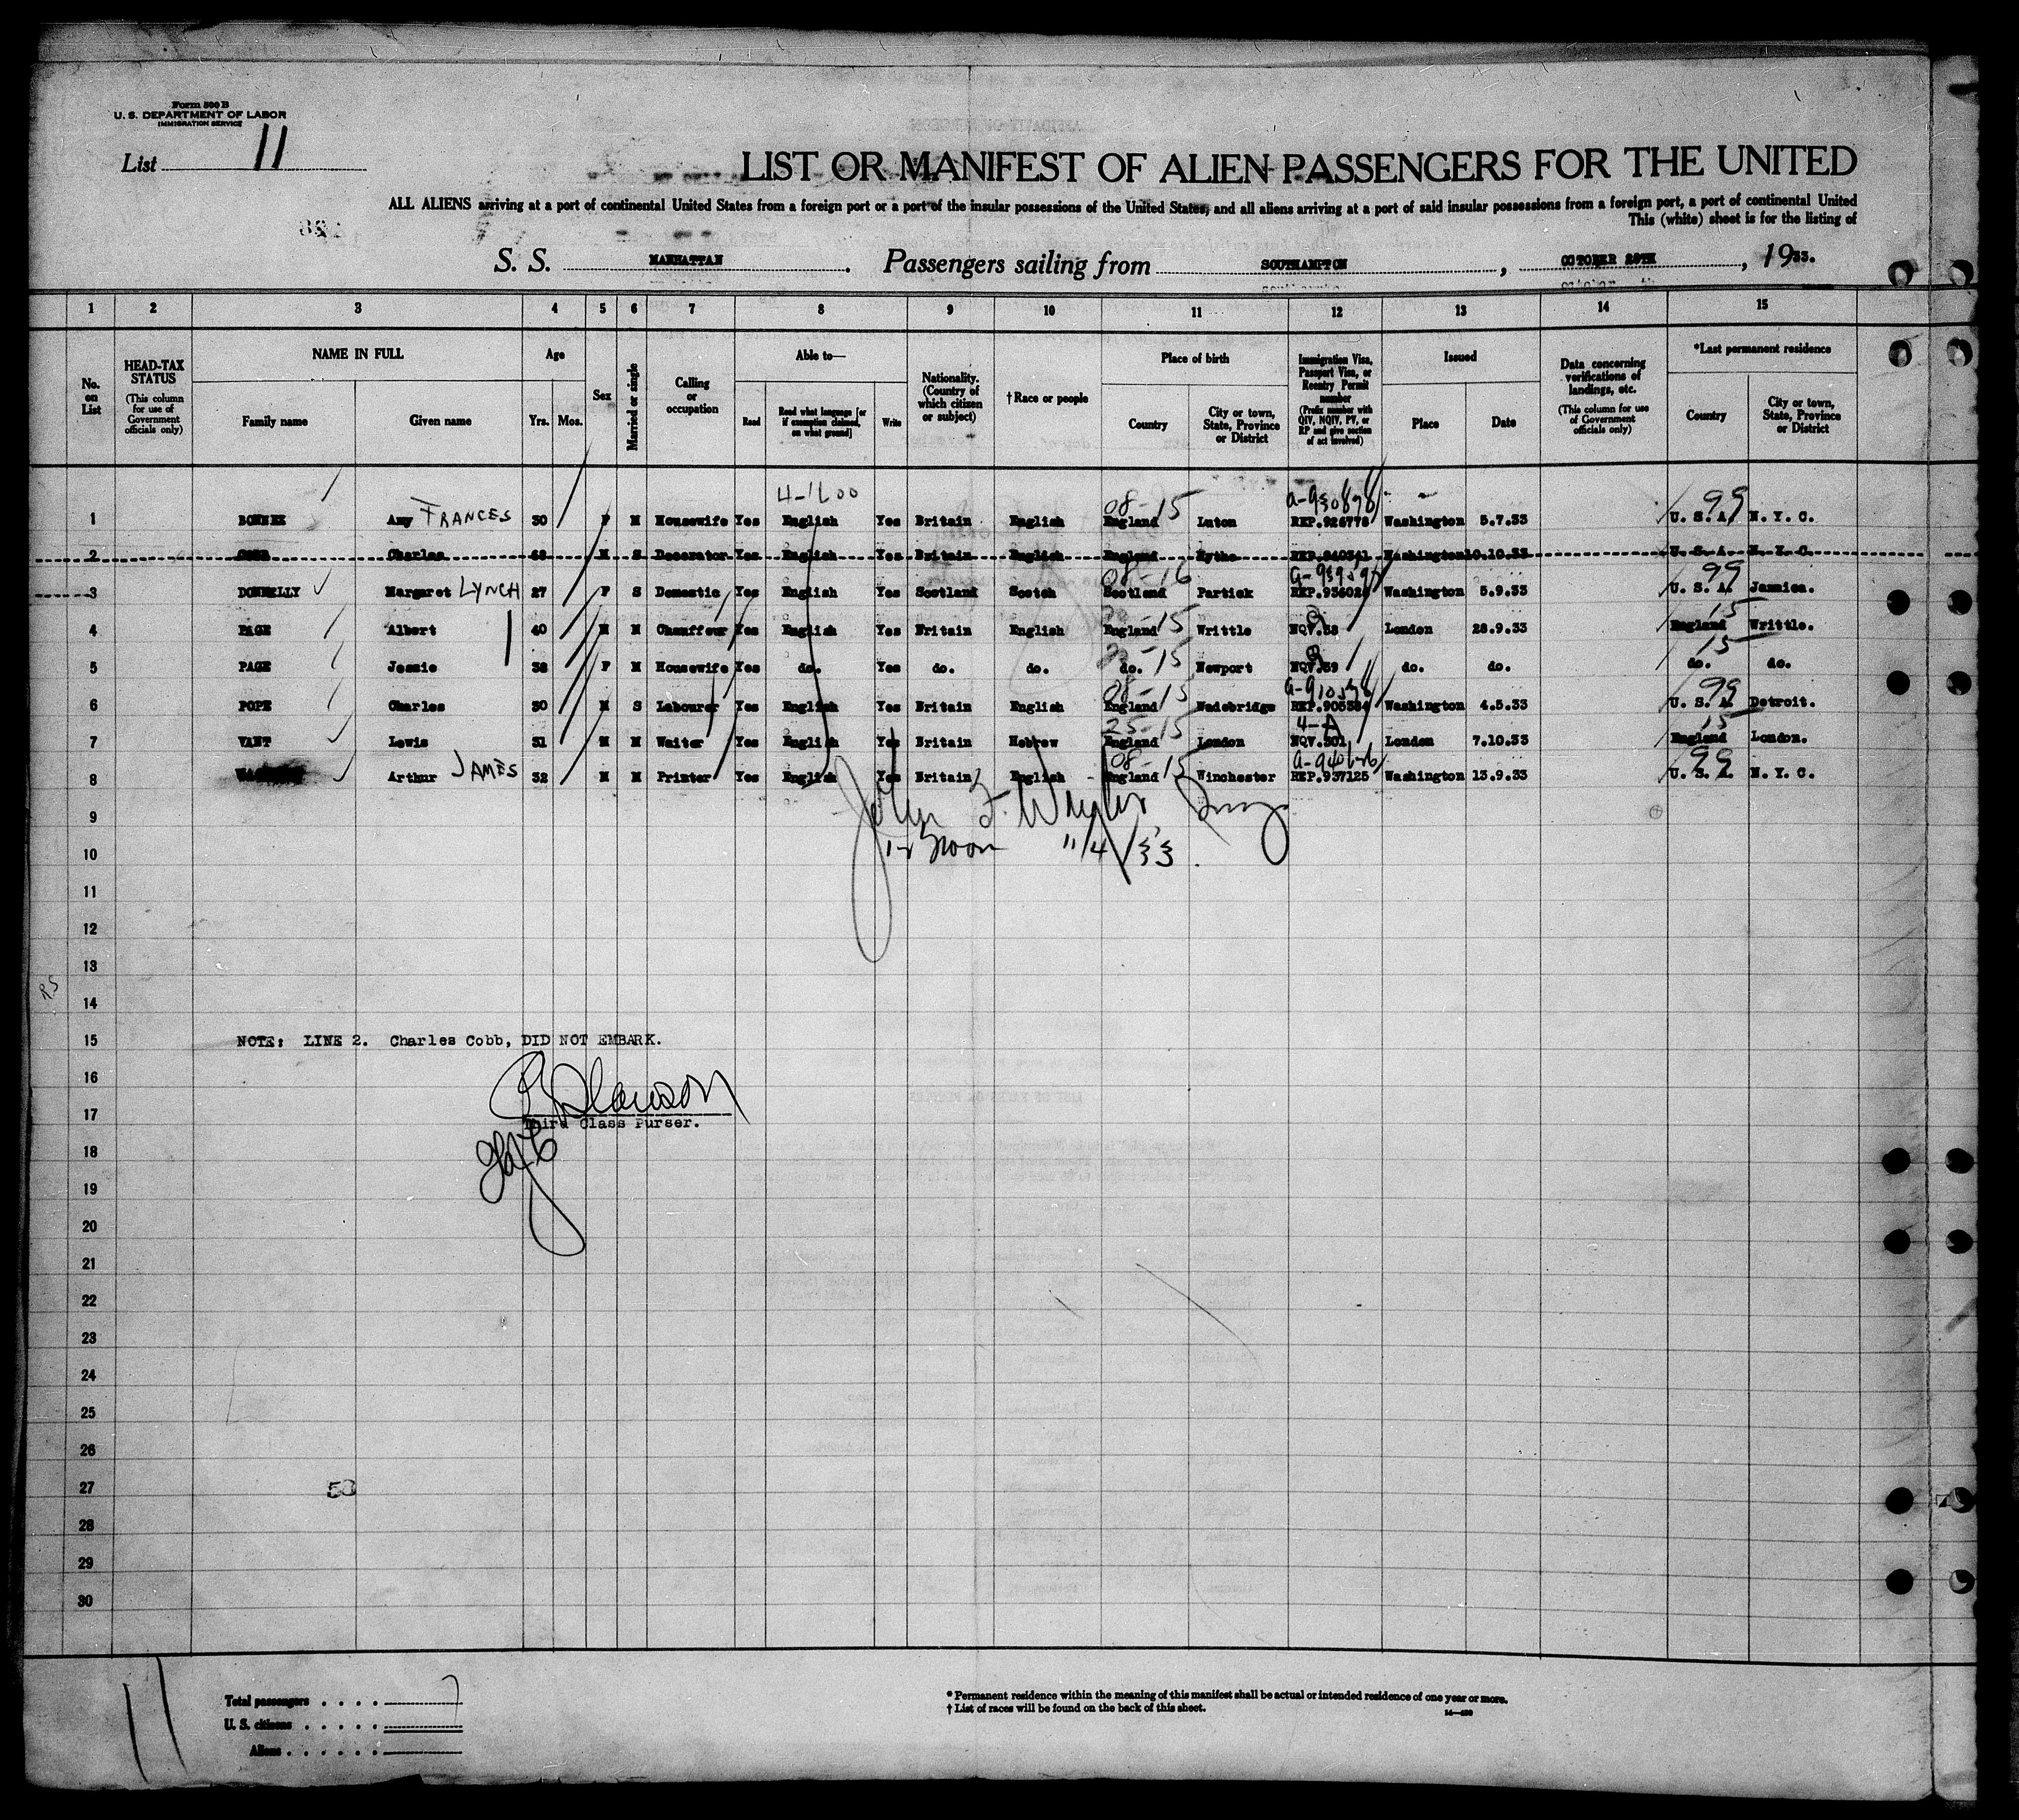 Form 500 B
U. S. DEPARTMENT OF LABOR
IMMIGRATION SERVICE
List 11
LIST OR MANIFEST OF ALIEN PASSENGERS FOR THE UNITED
ALL ALIENS arriving at a port of continental United States from a foreign port or a port of the insular possessions of the United States, and all aliens arriving at a port of said insular possessions from a foreign port, a port of continental United
This (white) sheet is for the listing of
S. S. MANHATTAN. Passengers sailing from SOUTHAMPTON, OCTOBER 28TH, 1933.
1 2 3 4 5 6 7 8 9 10 11 12 13 14 15
No. on List
HEAD-TAX STATUS (This column for use of Government officials only)
NAME IN FULL Family name Given name
Age Yrs. Mos.
Sex
Married or single
Calling or occupation
Able to— Read Read what language [or if exemption claimed, on what ground] Write
Nationality. (Country of which citizen or subject)
† Race or people
Place of birth Country City or town, State, Province or District
Immigration Visa, Passport Visa, or Reentry Permit number (Prefix number with QIV, NQIV, PV, or RP and give section of act involved)
Issued Place Date
Data concerning verifications of landings, etc. (This column for use of Government officials only)
*Last permanent residence Country City or town, State, Province or District
4-1600 08-15 99
1 Amy FRANCES 30 F M Housewife Yes English Yes Britain English England Luton REP.926778 Washington 5.7.33 U. S. A. N. Y. C.
2 COBB Charles M S Decorator Yes English Yes Britain English England Hythe Washington 10.10.33 U. S. A. N. Y. C.
08-16 99
3 DONNELLY Margaret LYNCH 27 F S Domestic Yes English Yes Scotland Scotch Scotland Partick Washington 5.9.33 U. S. A. Jamaica.
15 15
4 PAGE Albert 40 M M Chauffeur Yes English Yes Britain English England Writtle NQV.58 London 28.9.33 England Writtle.
15 15
5 PAGE Jessie 38 F M Housewife Yes do. Yes do. do. do. Newport NQV.59 do. do. do. do.
08-15 99
6 POPE Charles 30 M S Labourer Yes English Yes Britain English England Wadebridge Washington 4.5.33 U. S. A. Detroit.
25-15 4-A 15
7 VANT Lewis 31 M M Waiter Yes English Yes Britain Hebrew England London NQV.301 London 7.10.33 England London.
08-15 99
8 Arthur JAMES 32 M M Printer Yes English Yes Britain English England Winchester REP.937125 Washington 13.9.33 U. S. A. N. Y. C.
9
John F.
10
12 Noon 11/4/33.
11
12
13
14
15 NOTE: LINE 2. Charles Cobb, DID NOT EMBARK.
16
17
Third Class Purser.
18
19
20
21
22
23
24
25
26
27
53
28
29
30
11
Total passengers . . . . 7
U. S. citizens . . . . .
Aliens . . . . . .
* Permanent residence within the meaning of this manifest shall be actual or intended residence of one year or more.
† List of races will be found on the back of this sheet.